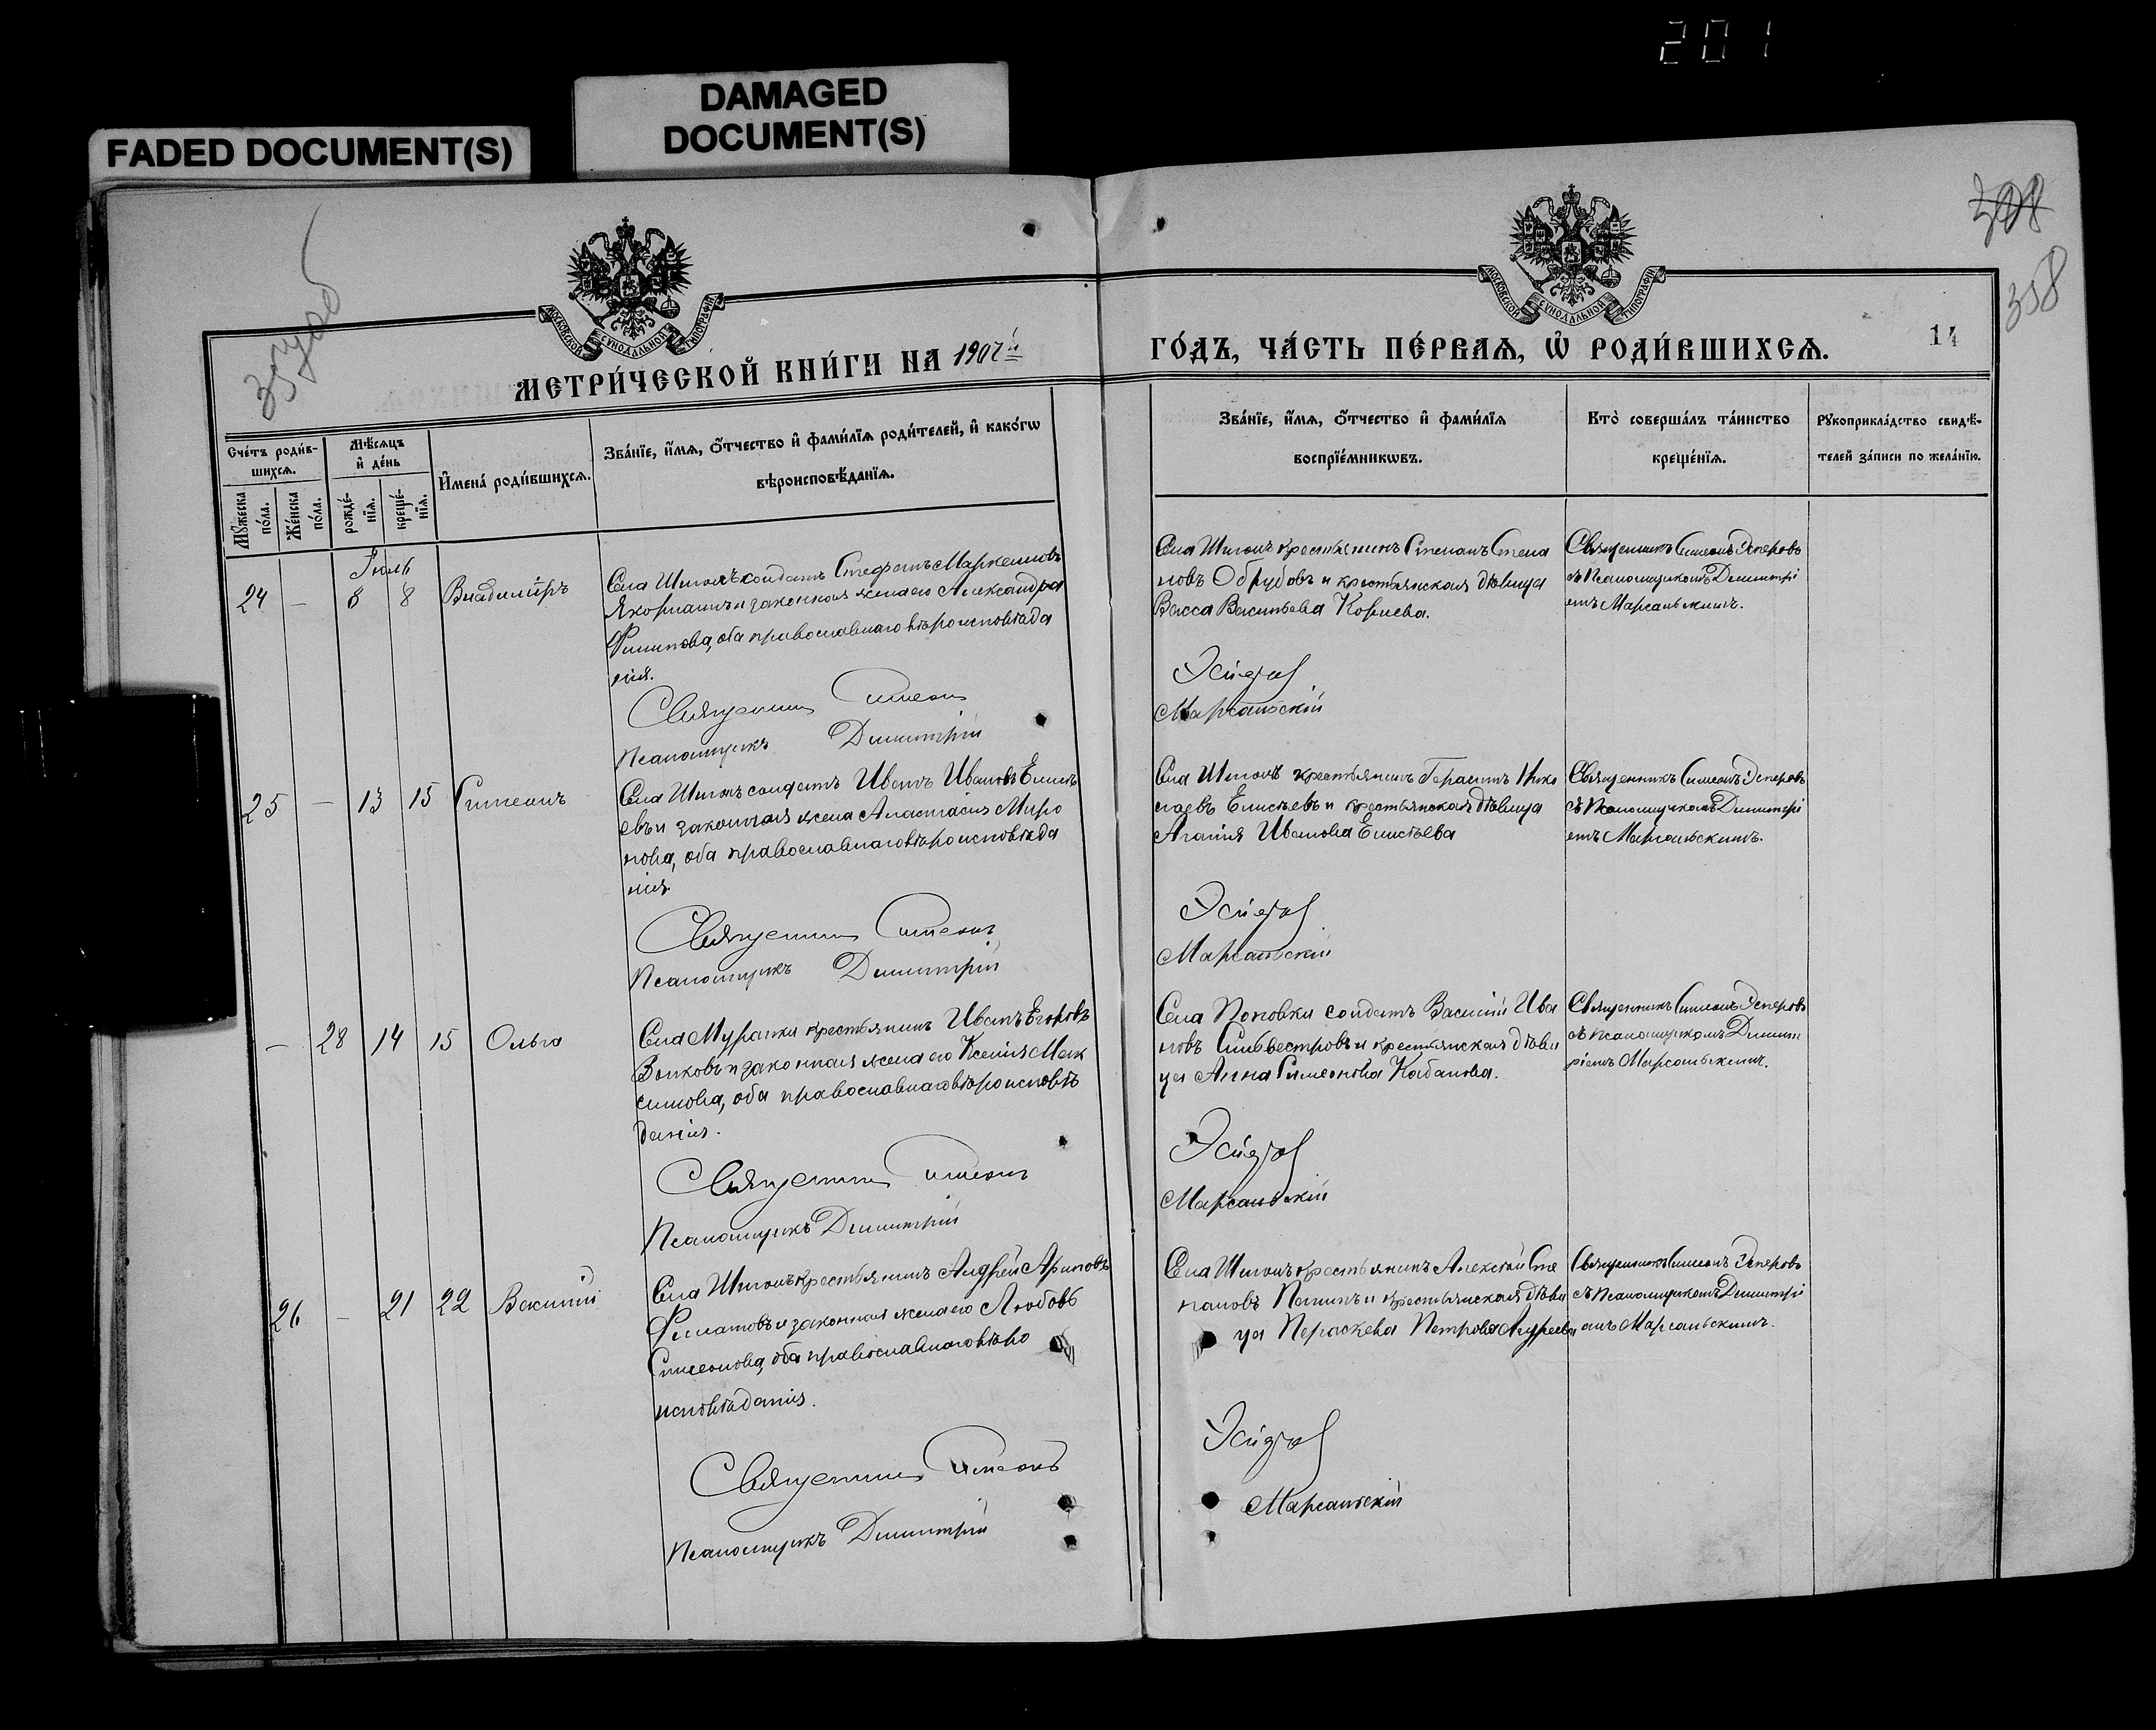 201
FADED DOCUMENT(S)
DAMAGED
DOCUMENT(S)
358
14
МОСКОВСКОЙ СѴНОДАЛЬНОЙ ТИПОГРАФІИ
МОСКОВСКОЙ СѴНОДАЛЬНОЙ ТИПОГРАФІИ
МЕТРИ́ЧЕСКОЙ КНИ́ГИ НА 1907й
ГО́ДЪ, ЧА́СТЬ ПЕ́РВАѦ, Ѡ҆ РОДИ́ВШИХСѦ.
Сче́тъ роди́в-
шихсѧ.
Мꙋ́жеска по́ла.
Же́нска по́ла.
Мѣ́сѧцъ и҆ де́нь
рожде́-нїѧ.
креще́-нїѧ.
И҆мена̀ роди́вшихсѧ.
Зва́нїе, и҆́мѧ, ѻ҆́тчество и҆ фами́лїѧ роди́телей, и҆ како́гѡ
вѣроисповѣ́данїѧ.
Зва́нїе, и҆́мѧ, ѻ҆́тчество и҆ фами́лїѧ
воспрїе́мникѡвъ.
Кто̀ соверша́лъ та́инство
креще́нїѧ.
Рꙋкоприкла́дство свидѣ́-
телей за́писи по жела́нїю.
Іюль
24 — 8 8 Владимiръ
Села Шигонъ солдатъ Стефанъ Маркеловъ
и законная жена его Александра
Филипова, оба православнаго вѣроисповѣда
нія.
Священникъ Симеонъ
Псаломщикъ Димитрій
Села Шигонъ крестьянинъ Степанъ Степа
новъ Обрубовъ и крестьянская дѣвица
Васса Васильева Корнева.
Марсальскій
Священникъ Симеонъ Эсперовъ
съ Псаломщикомъ Димитрі
емъ Марсальскимъ.
25 — 13 15 Симеонъ
Села Шигонъ солдатъ Иванъ Ивановъ Елисѣ
евъ и законная жена Анастасія Миро
нова, оба православнаго вѣроисповѣда
нія.
Священникъ Симеонъ
Псаломщикъ Димитрій
Села Шигонъ крестьянинъ Герасимъ Нико
лаевъ Елисѣевъ и крестьянская дѣвица
Агапія Иванова Елисѣева
Марсальскій
Священникъ Симеонъ Эсперовъ
съ Псаломщикомъ Димитрі
емъ Марсальскимъ.
— 28 14 15 Ольга
Села Муранки крестьянинъ Иванъ Егоровъ
Волковъ и законная жена его Ксенія Мак
симова, оба православнаго вѣроисповѣ
данія.
Священникъ Симеонъ
Псаломщикъ Димитрій
Села Поповки солдатъ Василій Ива
новъ Сильвестровъ и крестьянская дѣви
ца Анна Симеонова Кабанова.
Марсальскій
Священникъ Симеонъ Эсперовъ
съ псаломщикомъ Димит
ріемъ Марсальскимъ.
26 — 21 22 Василій
Села Шигонъ крестьянинъ Андрей
Филатовъ и законная жена его Любовь
Симеонова, оба православнаго вѣро
исповѣданія.
Священникъ Симеонъ
Псаломщикъ Димитрій
Села Шигонъ крестьянинъ Алексѣй Сте
пановъ и крестьянская дѣви
ца Параскева Петрова Андреева
Марсальскій
Священникъ Симеонъ Эсперовъ
съ Псаломщикомъ Димитрі
емъ Марсальскимъ.